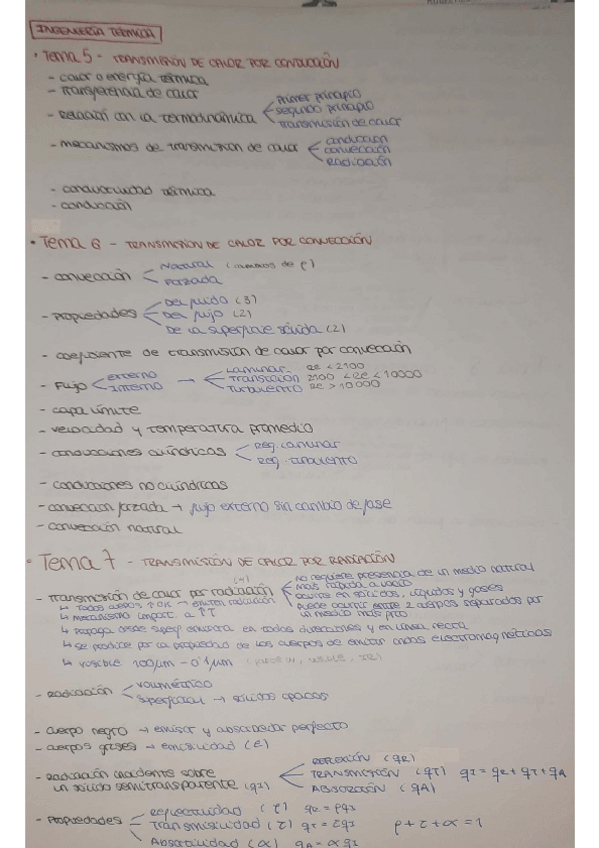 INGENIERÍA TÉRMICA
• Tema 5 - TRANSMISIÓN DE CALOR POR CONDUCCIÓN
- calor o energía térmica
- Transferencia de calor
- Relación con la termodinámica < Primer principio
segundo principio
Transmisión de calor
- mecanismos de transmisión de calor < conducción
convección
Radiación
- conductividad térmica
- conducción
• Tema 6 - TRANSMISIÓN DE CALOR POR CONVECCIÓN
- convección < Natural ( de ρ)
Forzada
- Propiedades < Del fluido (3)
Del flujo (2)
De la superficie sólida (2)
- coeficiente de transmisión de calor por convección
- Flujo < externo
Interno → < Laminar Re < 2100
Transición 2100 < Re < 10000
Turbulento Re > 10000
- capa límite
- velocidad y temperatura promedio
- conducciones cilíndricas < Reg. Laminar
Reg. Turbulento
- conducciones no cilíndricas
- convección forzada → flujo externo sin cambio de fase
- convección natural
• Tema 7 - TRANSMISIÓN DE CALOR POR RADIACIÓN
- Transmisión de calor por radiación (4) < No requiere presencia de un medio natural
más rápida a vacío
ocurre en sólidos, líquidos y gases
Puede ocurrir entre 2 cuerpos separados por
un medio más frío
↳ Todos cuerpos ↑ 0K → emiten radiación
↳ Mecanismo import. a ↑T
↳ Propaga desde superf emisora en todas direcciones y en línea recta
↳ se produce por la propiedad de los cuerpos de emitir ondas electromagnéticas
↳ visible 100μm - 0'1μm
- Radiación < volumétrico
superficial → sólidos opacos
- cuerpo negro → emisor y absorbedor perfecto
- cuerpos grises → emisividad (ε)
- Radiación incidente sobre
un sólido semitransparente (qI) < REFLEXIÓN (qR)
TRANSMISIÓN (qT) qI = qR + qT + qA
ABSORCIÓN (qA)
- Propiedades < Reflectividad (τ) qR = ρqI
Transmisividad (τ) qT = τqI ρ + τ + α = 1
Absortividad (α) qA = α qI